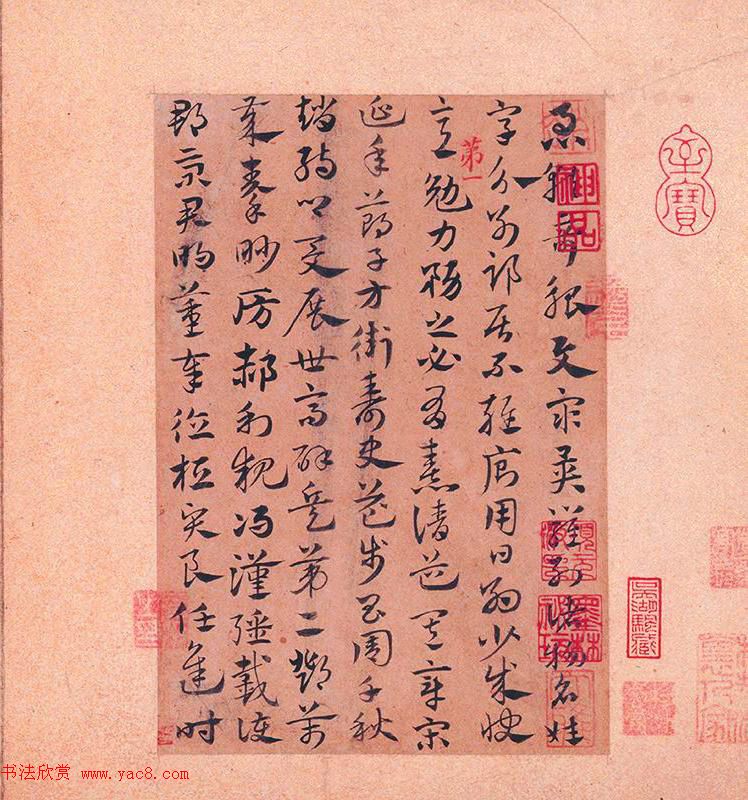 急就奇觚與衆異羅列諸物名姓
字分別部居不雜廁用日約少誠快
第一
意勉力務之必有憙請道其章宋
延年鄭子方衛壽史步昌周千秋
趙孺卿爰展世高辟兵第二鄧萬
歲秦眇房郝利親馮漢彊戴護
郡景君明董奉德桓賢良任逢時
书法欣赏 www.yac8.com